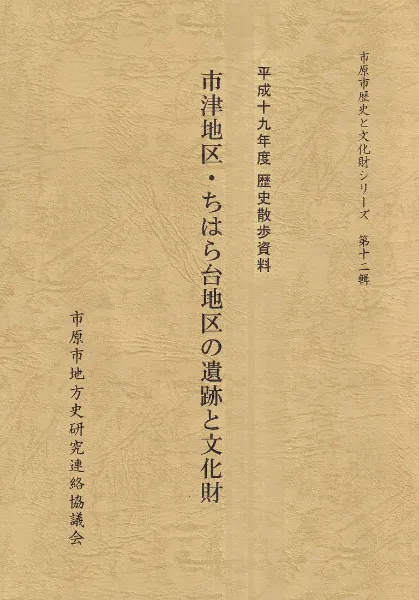 市原市歴史と文化財シリーズ 第十二輯
平成十九年度 歴史散歩資料
市津地区・ちはら台地区の遺跡と文化財
市原市地方史研究連絡協議会